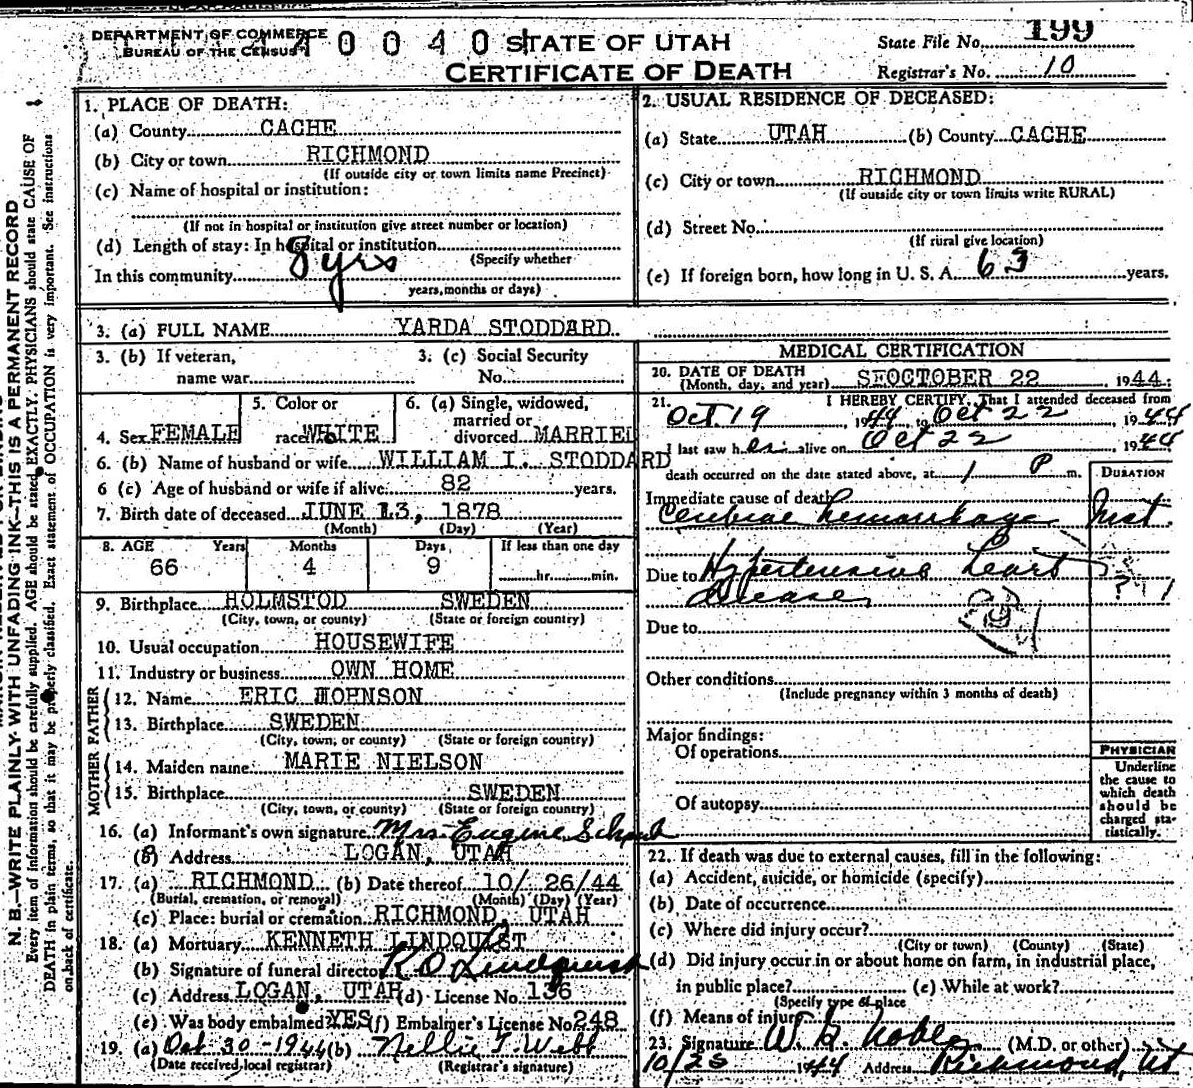 DEPARTMENT OF COMMERCE
BUREAU OF THE CENSUS
0 0 4 0
STATE OF UTAH
CERTIFICATE OF DEATH
State File No. 199
Registrar's No. 10
N. B.—WRITE PLAINLY WITH UNFADING INK—THIS IS A PERMANENT RECORD
Every item of information should be carefully supplied. AGE should be stated EXACTLY. PHYSICIANS should state CAUSE OF
DEATH in plain terms, so that it may be properly classified. Exact statement of OCCUPATION is very important. See instructions
on back of certificate.
1. PLACE OF DEATH:
(a) County CACHE
(b) City or town RICHMOND
(If outside city or town limits name Precinct)
(c) Name of hospital or institution:
(If not in hospital or institution give street number or location)
(d) Length of stay: In hospital or institution
(Specify whether
In this community 8 yrs
years, months or days)
2. USUAL RESIDENCE OF DECEASED:
(a) State UTAH (b) County CACHE
(c) City or town RICHMOND
(If outside city or town limits write RURAL)
(d) Street No.
(If rural give location)
(e) If foreign born, how long in U. S. A. 63 years.
3. (a) FULL NAME YARDA STODDARD
3. (b) If veteran, 3. (c) Social Security
name war No.
4. Sex FEMALE
5. Color or
race WHITE
6. (a) Single, widowed,
married or
divorced MARRIED
6. (b) Name of husband or wife WILLIAM I. STODDARD
6 (c) Age of husband or wife if alive 82 years.
7. Birth date of deceased JUNE 13, 1878
(Month) (Day) (Year)
8. AGE Years Months Days If less than one day
66 4 9 hr. min.
9. Birthplace HOLMSTOD SWEDEN
(City, town, or county) (State or foreign country)
10. Usual occupation HOUSEWIFE
11. Industry or business OWN HOME
FATHER
12. Name ERIC JOHNSON
13. Birthplace SWEDEN
(City, town, or county) (State or foreign country)
MOTHER
14. Maiden name MARIE NIELSON
15. Birthplace SWEDEN
(City, town, or county) (State or foreign country)
16. (a) Informant's own signature Mrs. Eugene
(b) Address LOGAN, UTAH
17. (a) RICHMOND (b) Date thereof 10/ 26/44
(Burial, cremation, or removal) (Month) (Day) (Year)
(c) Place: burial or cremation RICHMOND, UTAH
18. (a) Mortuary KENNETH LINDQUIST
(b) Signature of funeral director R O Lindquist
(c) Address LOGAN, UTAH (d) License No. 136
(e) Was body embalmed YES (f) Embalmer's License No. 248
19. (a) Oct 30-1944 (b) Nellie T Webb
(Date received local registrar) (Registrar's signature)
MEDICAL CERTIFICATION
20. DATE OF DEATH
(Month, day, and year) SEOCTOBER 22, 1944
21. I HEREBY CERTIFY, That I attended deceased from
Oct. 19, 1944, to Oct 22 1944
I last saw her alive on Oct 22 1944
death occurred on the date stated above, at 1 P m.
DURATION
Immediate cause of death
Cerebral hemorrhage Inst.
Due to Hypertensive heart
disease
Due to
Other conditions
(Include pregnancy within 3 months of death)
Major findings:
Of operations
Of autopsy
PHYSICIAN
Underline
the cause to
which death
should be
charged sta-
tistically.
22. If death was due to external causes, fill in the following:
(a) Accident, suicide, or homicide (specify)
(b) Date of occurrence
(c) Where did injury occur?
(City or town) (County) (State)
(d) Did injury occur in or about home on farm, in industrial place,
in public place? (e) While at work?
(Specify type of place
(f) Means of injury
23. Signature W. G. Noble (M.D. or other)
10/25 1944 Address Richmond, Ut